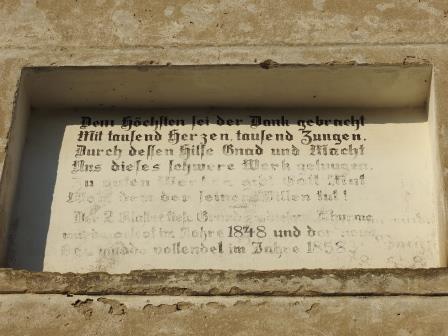 Dem Höchsten sei der Dank gebracht
Mit tausend Herzen, tausend Zungen,
Durch dessen Hilfe Gnad und Macht
Uns dieses schwere Werk gelungen.
Zu guten Werken gibt Gott
Wohl dem der seinen Willen tut!
Der
wurde gelegt im Jahre 1848 und der
Bau wurde vollendet im Jahre 1858.